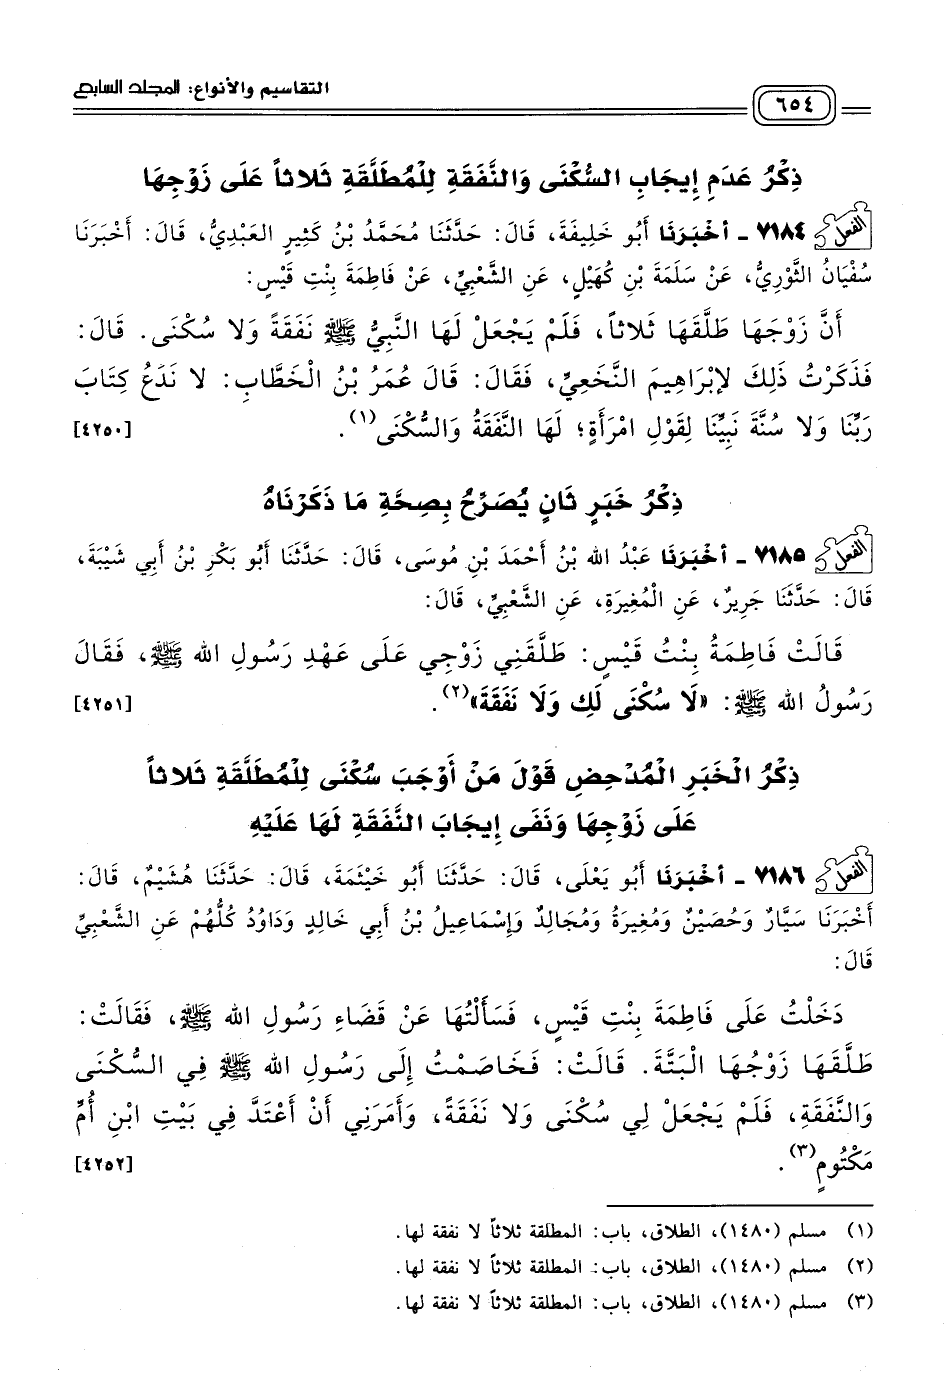 التقاسيم والأنواع: المجلد السابع
٦٥٤
ذِكْرُ عَدَمِ إِيجَابِ السُّكْنَى وَالنَّفَقَةِ لِلْمُطَلَّقَةِ ثَلَاثاً عَلَى زَوْجِهَا
الفعل ٧١٨٤ - أخْبَرَنَا أَبُو خَلِيفَةَ، قَالَ: حَدَّثَنَا مُحَمَّدُ بْنُ كَثِيرٍ العَبْدِيُّ، قَالَ: أَخْبَرَنَا
سُفْيَانُ الثَّوْرِيُّ، عَنْ سَلَمَةَ بْنِ كُهَيْلٍ، عَنِ الشَّعْبِيِّ، عَنْ فَاطِمَةَ بِنْتِ قَيْسٍ:
أَنَّ زَوْجَهَا طَلَّقَهَا ثَلَاثاً، فَلَمْ يَجْعَلْ لَهَا النَّبِيُّ ﷺ نَفَقَةً وَلا سُكْنَى. قَالَ:
فَذَكَرْتُ ذَلِكَ لإبْرَاهِيمَ النَّخَعِيِّ، فَقَالَ: قَالَ عُمَرُ بْنُ الْخَطَّابِ: لا نَدَعُ كِتَابَ
رَبِّنَا وَلا سُنَّةَ نَبِيِّنَا لِقَوْلِ امْرَأَةٍ؛ لَهَا النَّفَقَةُ وَالسُّكْنَى(١). [٤٢٥٠]
ذِكْرُ خَبَرٍ ثَانٍ يُصَرِّحُ بِصِحَّةِ مَا ذَكَرْنَاهُ
الفعل ٧١٨٥ - أخْبَرَنَا عَبْدُ الله بْنُ أَحْمَدَ بْنِ مُوسَى، قَالَ: حَدَّثَنَا أَبُو بَكْرِ بْنُ أَبِي شَيْبَةَ،
قَالَ: حَدَّثَنَا جَرِيرٌ، عَنِ الْمُغِيرَةِ، عَنِ الشَّعْبِيِّ، قَالَ:
قَالَتْ فَاطِمَةُ بِنْتُ قَيْسٍ: طَلَّقَنِي زَوْجِي عَلَى عَهْدِ رَسُولِ الله ﷺ، فَقَالَ
رَسُولُ الله ﷺ: «لَا سُكْنَى لَكِ وَلَا نَفَقَةَ»(٢). [٤٢٥١]
ذِكْرُ الْخَبَرِ الْمُدْحِضِ قَوْلَ مَنْ أَوْجَبَ سُكْنَى لِلْمُطَلَّقَةِ ثَلَاثاً
عَلَى زَوْجِهَا وَنَفَى إِيجَابَ النَّفَقَةِ لَهَا عَلَيْهِ
الفعل ٧١٨٦ - أخْبَرَنَا أَبُو يَعْلَى، قَالَ: حَدَّثَنَا أَبُو خَيْثَمَةَ، قَالَ: حَدَّثَنَا هُشَيْمٌ، قَالَ:
أَخْبَرَنَا سَيَّارٌ وَحُصَيْنٌ وَمُغِيرَةُ وَمُجَالِدٌ وَإِسْمَاعِيلُ بْنُ أَبِي خَالِدٍ وَدَاوُدُ كُلُّهُمْ عَنِ الشَّعْبِيِّ
قَالَ:
دَخَلْتُ عَلَى فَاطِمَةَ بِنْتِ قَيْسٍ، فَسَأَلْتُهَا عَنْ قَضَاءِ رَسُولِ الله ﷺ، فَقَالَتْ:
طَلَّقَهَا زَوْجُهَا الْبَتَّةَ. قَالَتْ: فَخَاصَمْتُ إِلَى رَسُولِ الله ﷺ فِي السُّكْنَى
وَالنَّفَقَةِ، فَلَمْ يَجْعَلْ لِي سُكْنَى وَلا نَفَقَةً، وَأَمَرَنِي أَنْ أَعْتَدَّ فِي بَيْتِ ابْنِ أُمِّ
مَكْتُومٍ(٣). [٤٢٥٢]
(١) مسلم (١٤٨٠)، الطلاق، باب: المطلقة ثلاثاً لا نفقة لها.
(٢) مسلم (١٤٨٠)، الطلاق، باب: المطلقة ثلاثاً لا نفقة لها.
(٣) مسلم (١٤٨٠)، الطلاق، باب: المطلقة ثلاثاً لا نفقة لها.